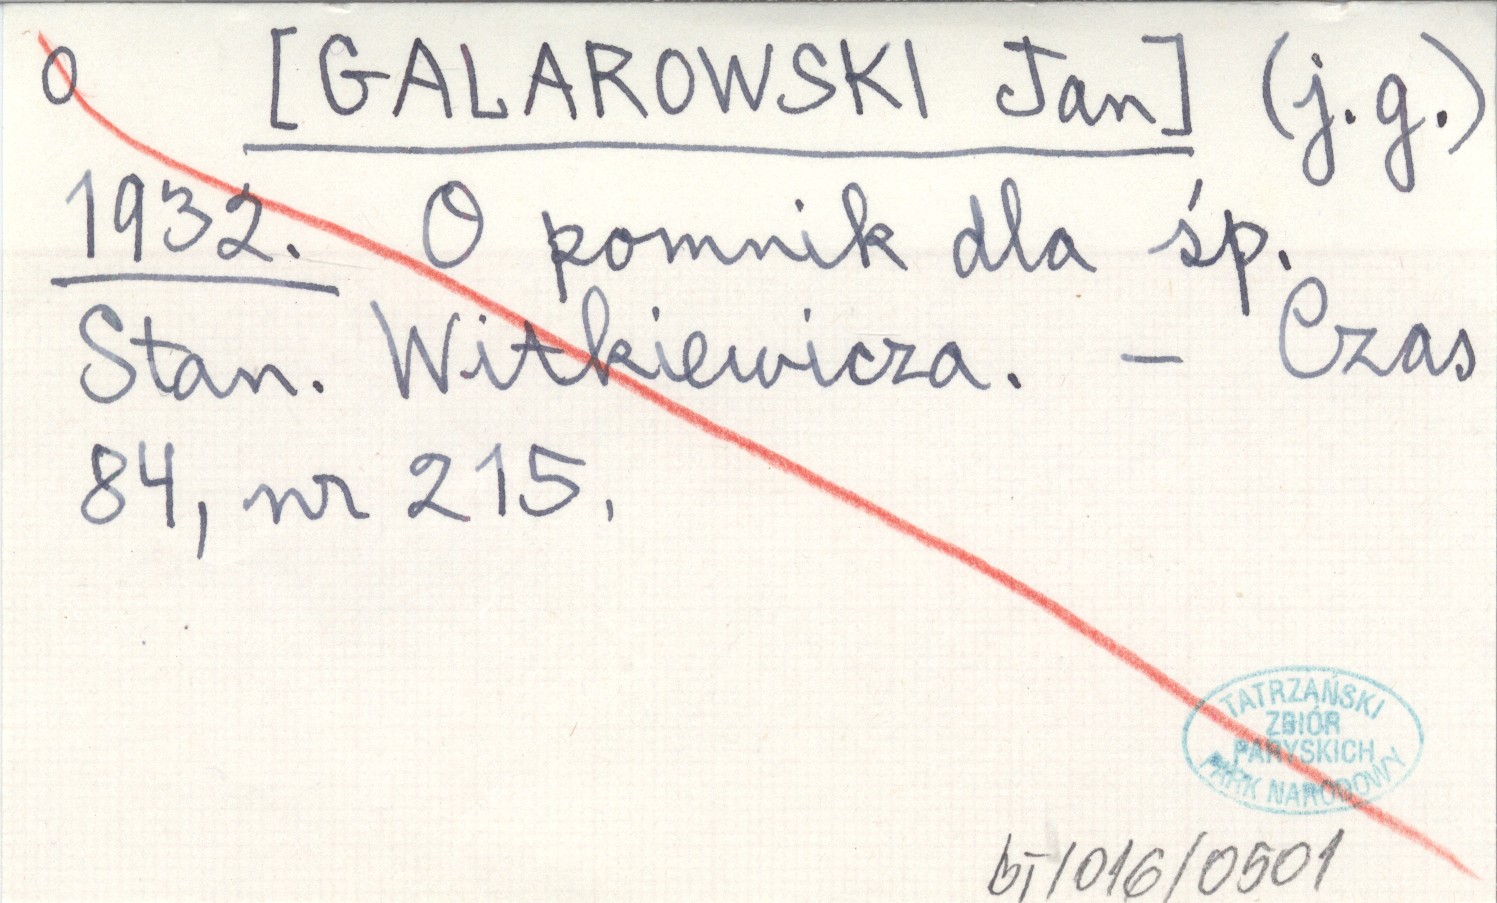 o [GALAROWSKI Jan] (j.g.)
1932. O pomnik dla śp.
Stan. Witkiewicza. – Czas
84, nr 215.
TATRZAŃSKI
ZBIÓR
PARYSKICH
PARK NARODOWY
bT/016/0501